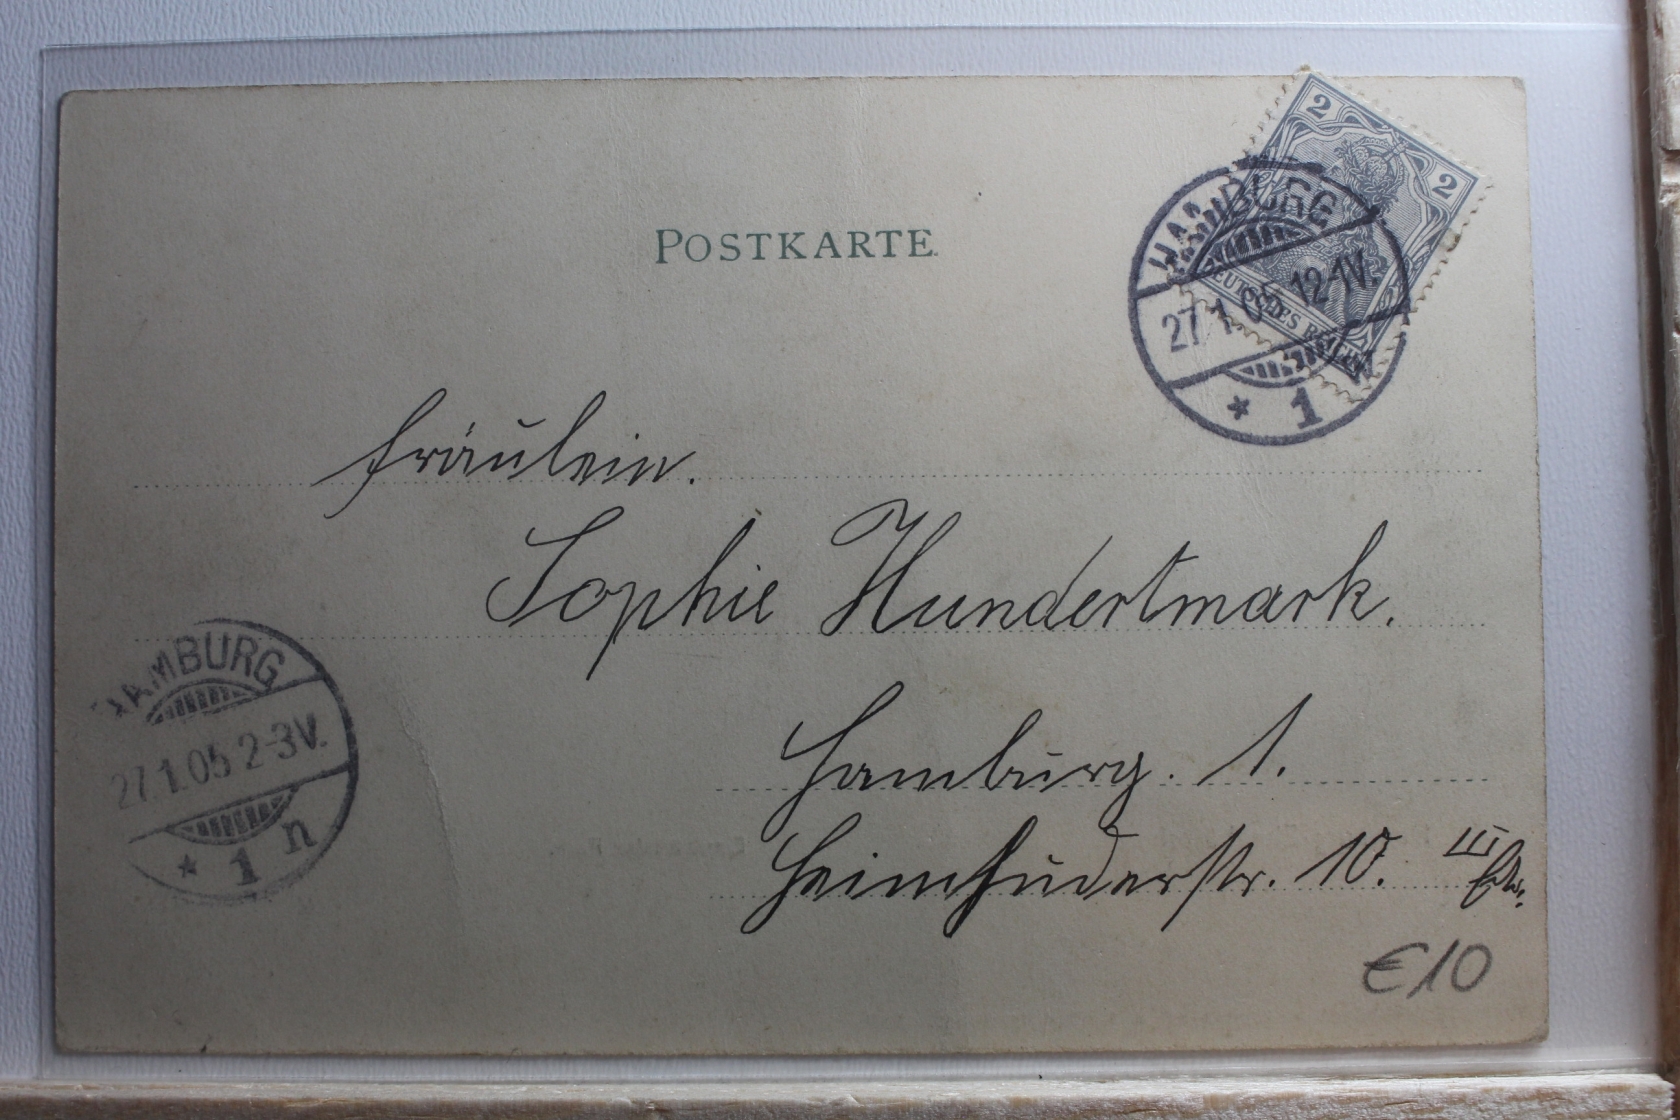 2 2
DEUTSCHES REICH
HAMBURG
27.1.05 12-1V.
* 1
POSTKARTE
Fräulein.
Sophie Hundertmark.
Hamburg. 1.
Heimhuderstr. 10. III
HAMBURG
27.1.05 2-3V.
* 1 n
€10